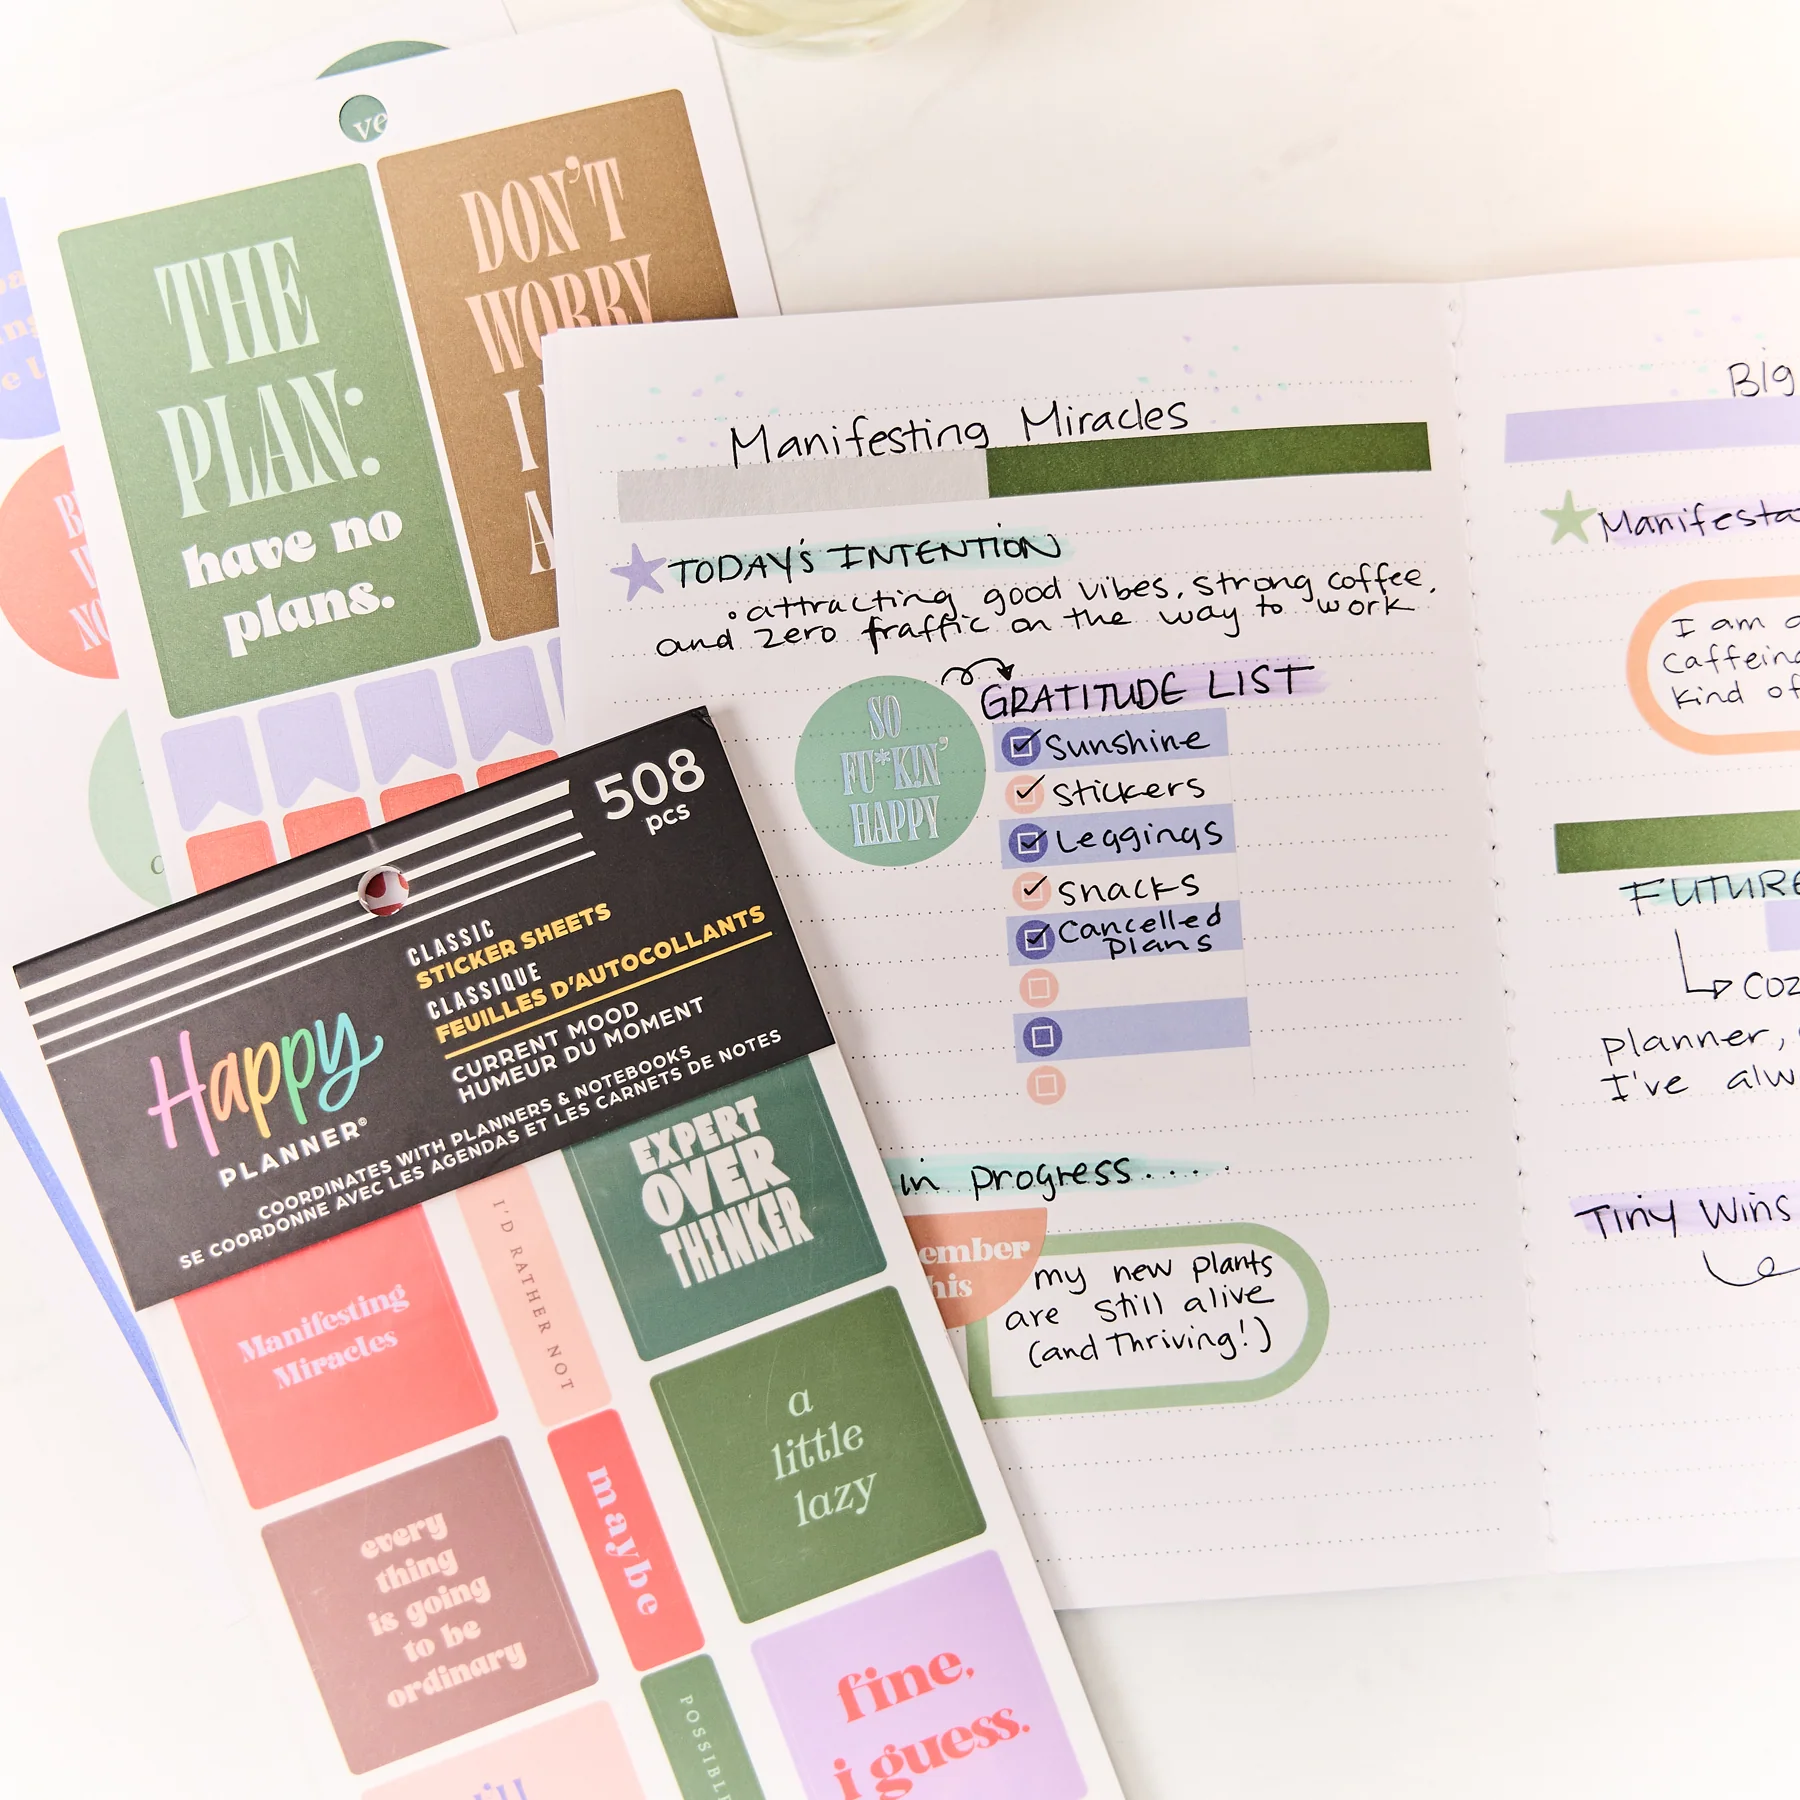 ve
THE
PLAN:
have no
plans.
DON'T
WORRY
I
508
pcs
CLASSIC
STICKER SHEETS
CLASSIQUE
FEUILLES D'AUTOCOLLANTS
CURRENT MOOD
HUMEUR DU MOMENT
COORDINATES WITH PLANNERS & NOTEBOOKS
SE COORDONNE AVEC LES AGENDAS ET LES CARNETS DE NOTES
Happy
PLANNER®
EXPERT
OVER
THINKER
I'D RATHER NOT
Manifesting
Miracles
a
little
lazy
maybe
every
thing
is going
to be
ordinary
fine,
i guess.
Manifesting Miracles
TODAY'S INTENTION
• attracting good vibes, strong coffee,
and zero traffic on the way to work
SO
FU*KIN'
HAPPY
GRATITUDE LIST
Sunshine
Stickers
Leggings
Snacks
Cancelled
Plans
in progress.....
my new plants
are still alive
(and Thriving!)
Big
I am
Caffein
kind of
FUTURE
planner,
I've
Tiny Wins